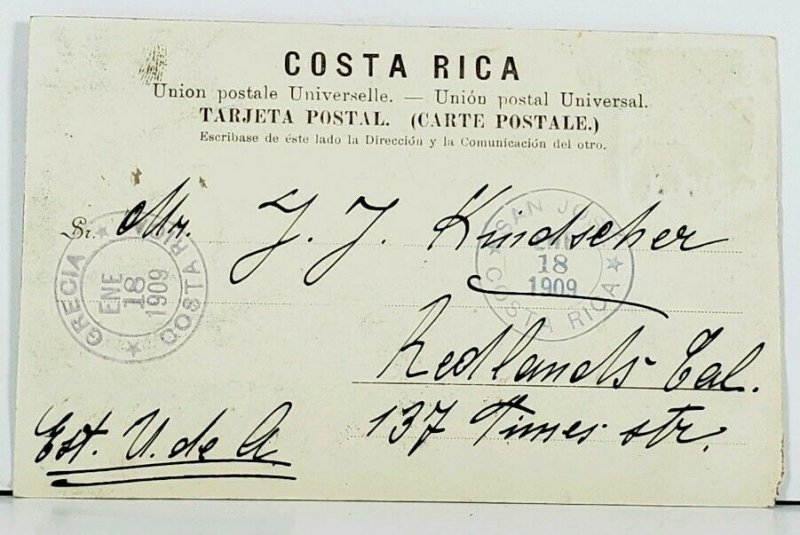 COSTA RICA
Union postale Universelle. — Unión postal Universal.
TARJETA POSTAL. (CARTE POSTALE.)
Escríbase de éste lado la Dirección y la Comunicación del otro.
Sr. Mr. J. J. Kindscher
Redlands Cal.
137 Times str.
Est. U. de A.
GRECIA
ENE
18
1909
COSTA RICA
SAN JOSE
18
1909
COSTA RICA